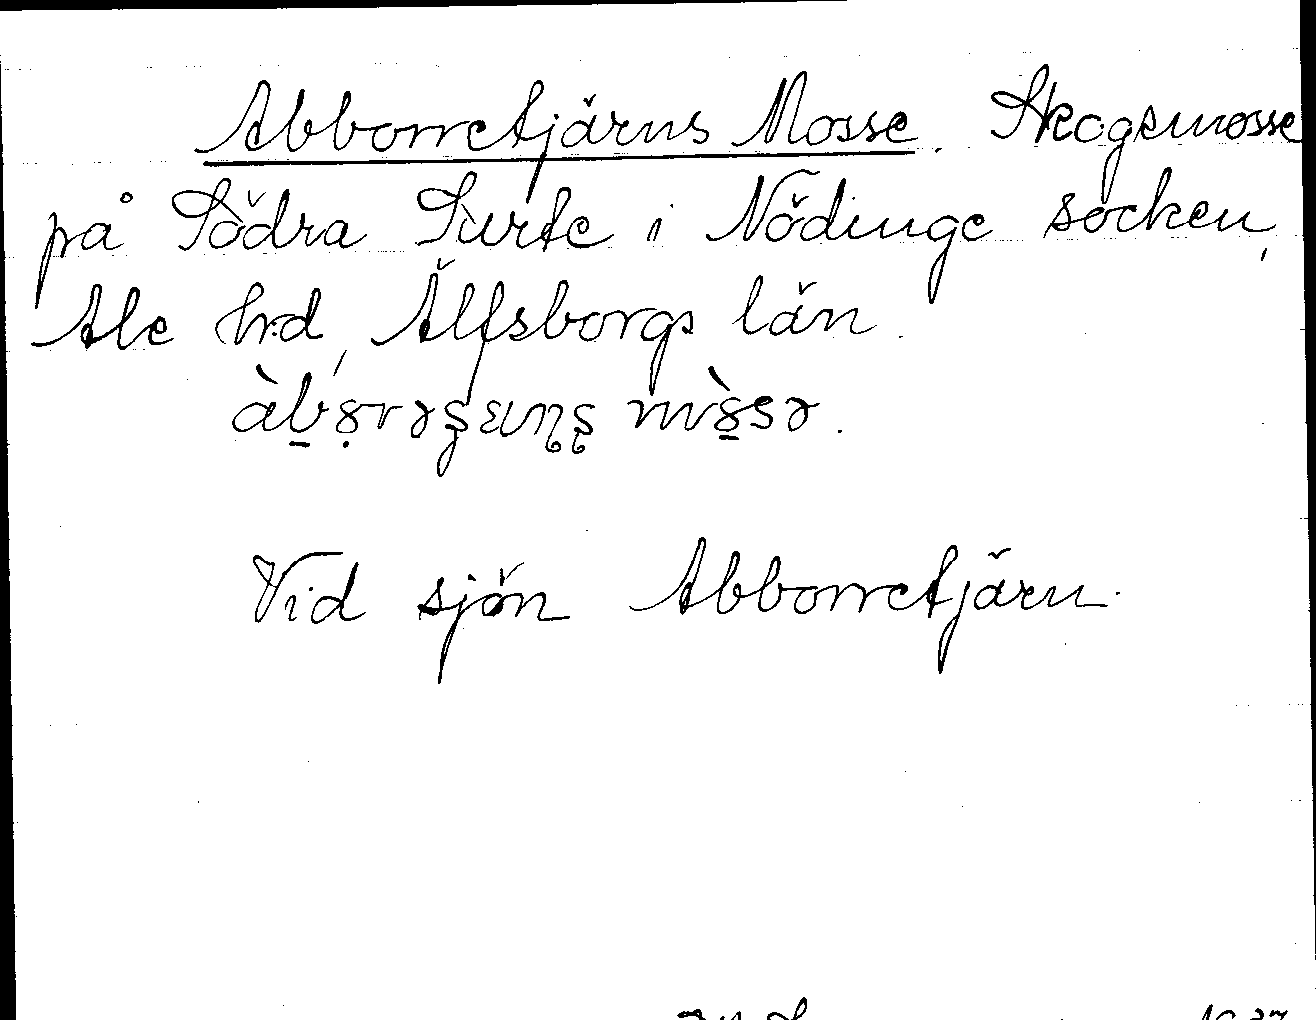 Abborretjärns Mosse. Skogsmosse
på Södra Surte i Nödinge socken,
Ale hrd, Älfsborgs län.
Vid sjön Abborretjärn.